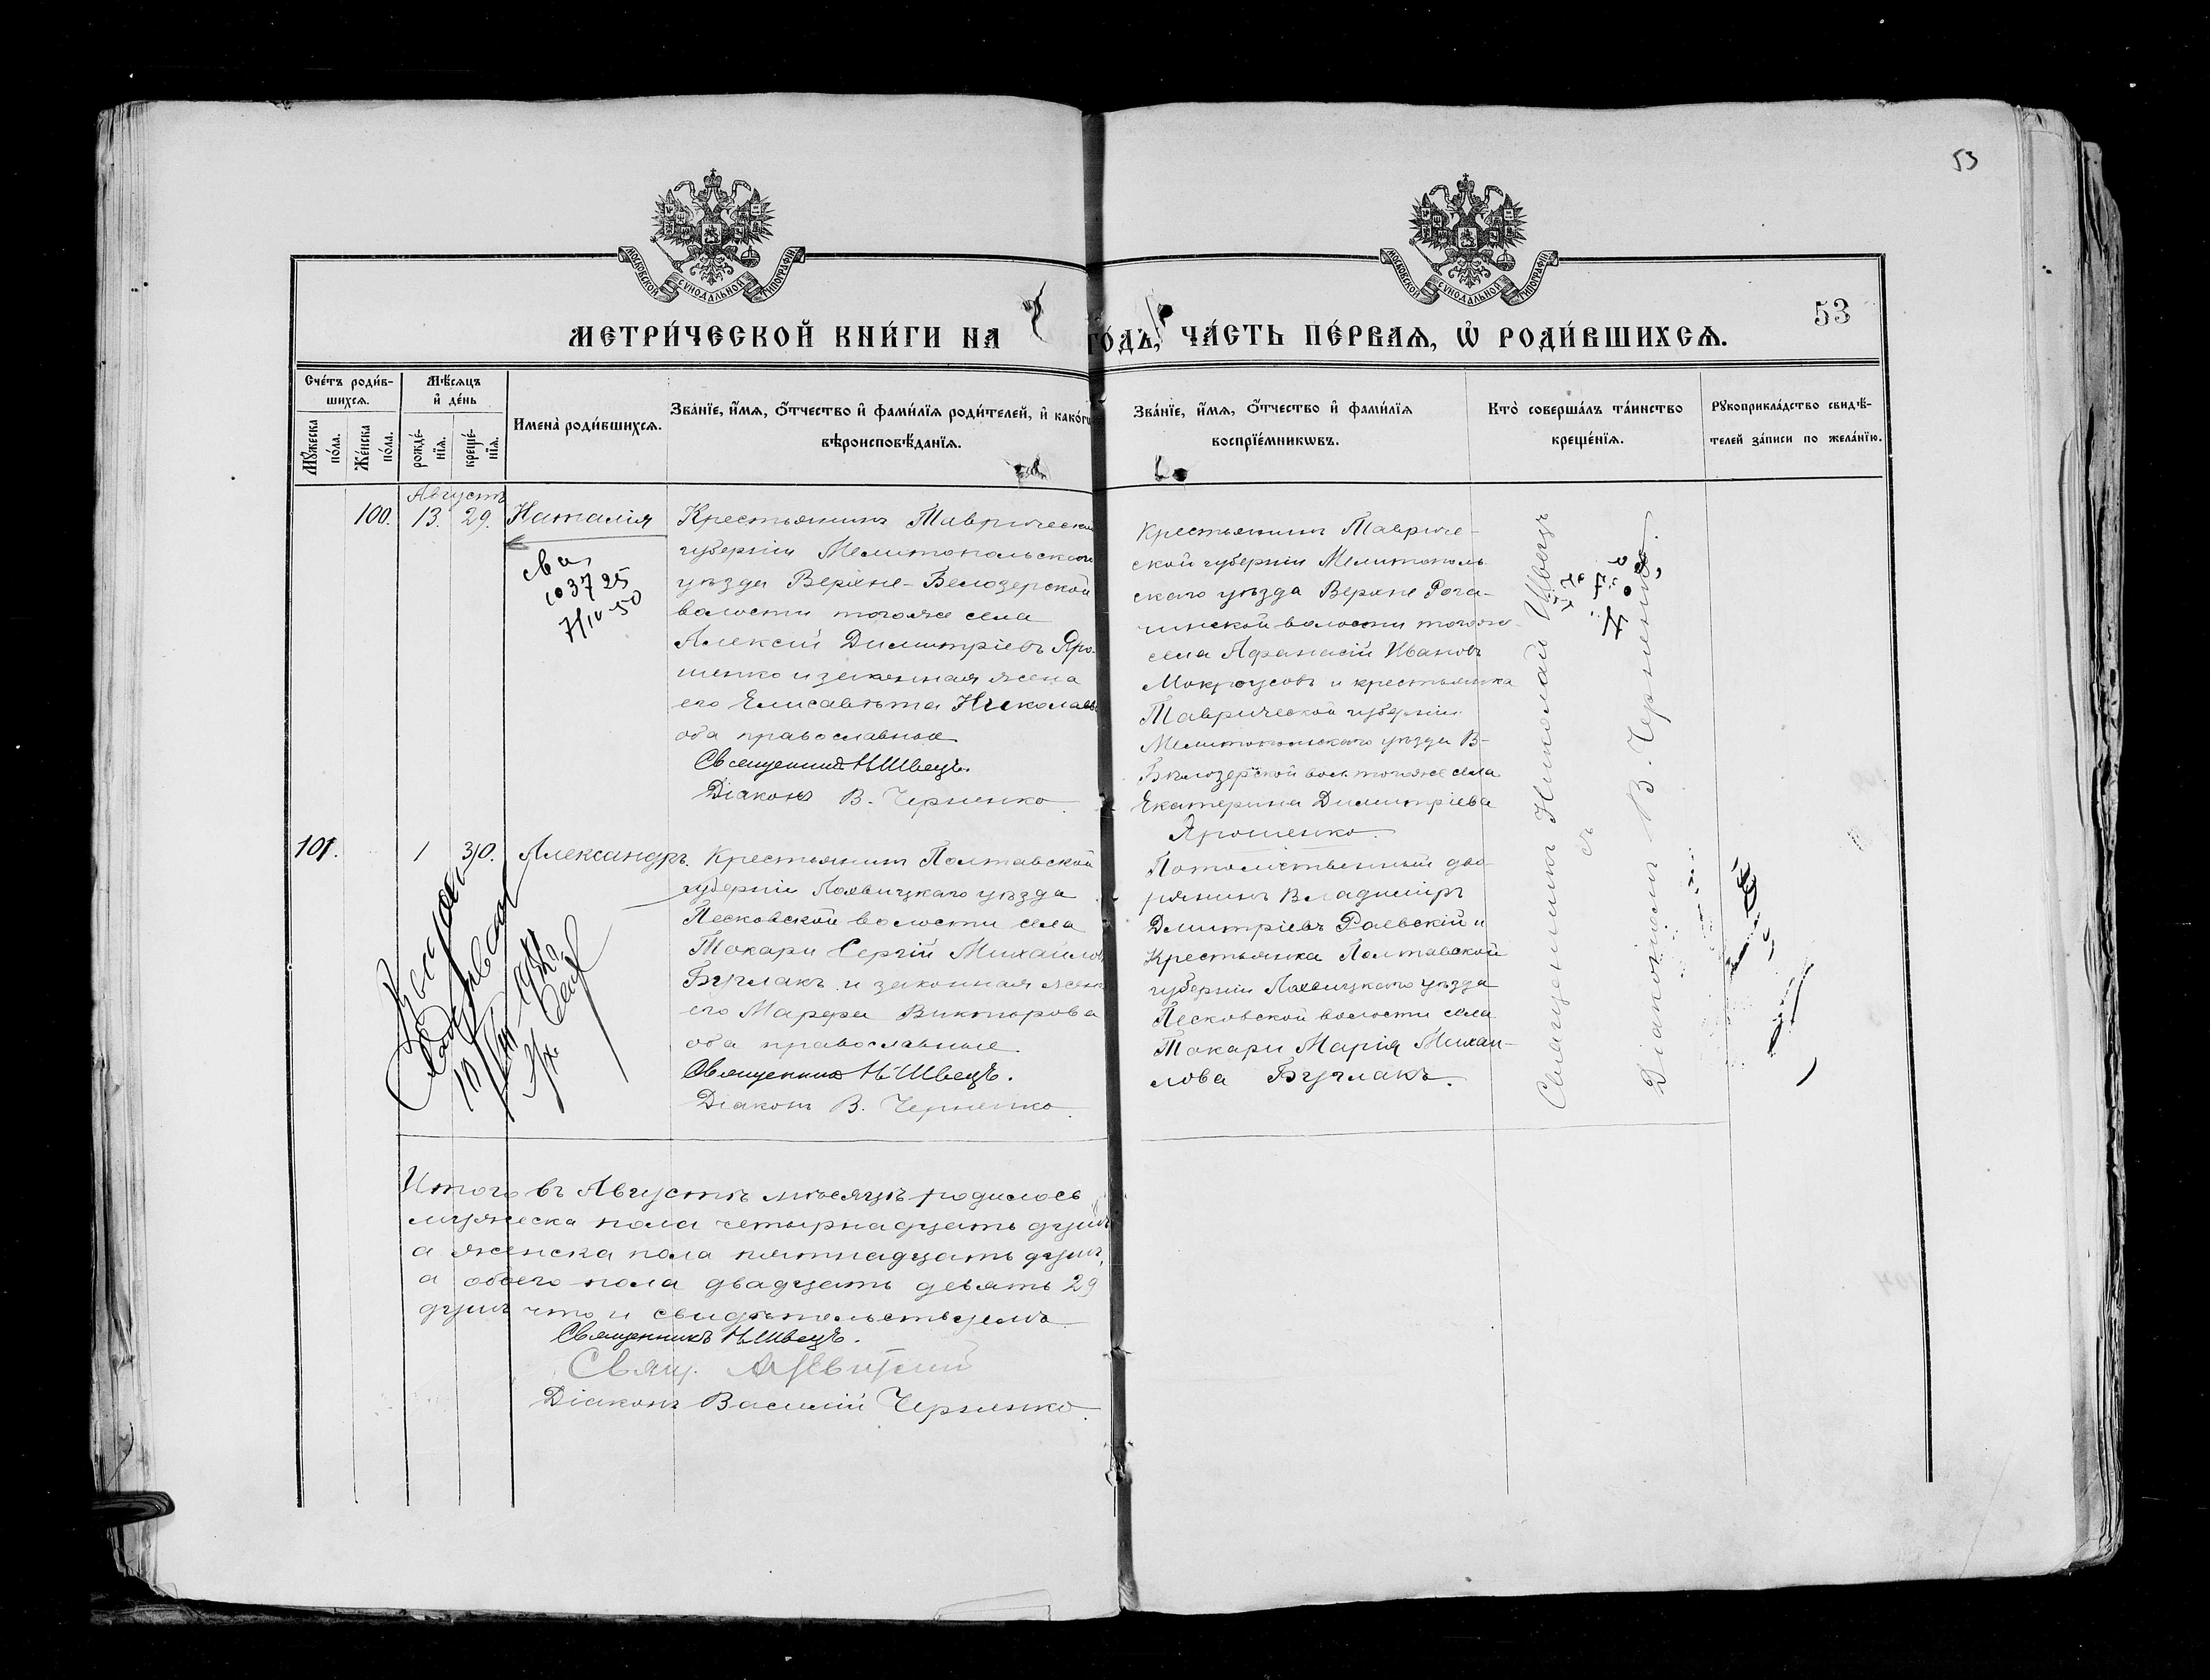 53
МОСКОВСКОЙ СѴНОДАЛЬНОЙ ТИПОГРАФІИ
МОСКОВСКОЙ СѴНОДАЛЬНОЙ ТИПОГРАФІИ
53
МЕТРИ́ЧЕСКОЙ КНИ́ГИ НА ГО́ДЪ, ЧА́СТЬ ПЕ́РВАѦ, Ѡ҆ РОДИ́ВШИХСѦ.
Сче́тъ роди́в-
шихсѧ.
Мꙋ́жеска
по́ла.
Же́нска
по́ла.
Мѣ́сѧцъ
и҆ де́нь
рожде́-
нїѧ.
креще́-
нїѧ.
Имена̀ роди́вшихсѧ.
Зва́нїе, и҆́мѧ, ѻ҆́тчество и҆ фами́лїѧ роди́телей, и҆ како́гѡ
вѣроисповѣ́данїѧ.
Зва́нїе, и҆́мѧ, ѻ҆́тчество и҆ фами́лїѧ
воспрїе́мникѡвъ.
Кто̀ соверша́лъ та́инство
креще́нїѧ.
Рꙋкоприкла́дство свидѣ́-
телей за́писи по жела́нїю.
Августъ
100. 13. 29. Наталія
10 37 25
Крестьянинъ Таврической
губерніи Мелитопольскаго
уѣзда Верхне-Белозерской
волости тогоже села
Алексій Димитріевъ Яро-
шенко и законная жена
его Елисавѣта Николаева
оба православные
Священникъ Н Швецъ.
Діаконъ В. Черненко
Крестьянинъ Тавриче-
ской губерніи Мелитополь-
скаго уѣзда Верхне Рога-
чинской волости тогоже
села Афанасій Ивановъ
Мокроусовъ и крестьянка
Таврической губерніи
Мелитопольскаго уѣзда В-
Бѣлозерской вол. тогоже села
Екатерина Димитріева
Ярошенко.
Священникъ Николай Швецъ
съ
Діакономъ В. Черненко.
101. 1 30. Александръ.
Крестьянинъ Полтавской
губерніи Лохвицкаго уѣзда
Песковской волости села
Токари Сергій Михайловъ
Бурлакъ и законная жена
его Марфа Викторова
оба православные.
Священникъ Н Швецъ.
Діаконъ В. Черненко
Потомственный дво-
рянинъ Владиміръ
Дмитріевъ Раевскій и
Крестьянка Полтавской
губерніи Лохвицкаго уѣзда
Песковской волости села
Токари Марія Михаи-
лова Бурлакъ.
Итого въ Августѣ мѣсяцѣ родилось
мужеска пола четырнадцать душъ
а женска пола пятнадцать душъ,
а обоего пола двадцать девять 29
душъ что и свидѣтельствуемъ
Священникъ Н Швецъ.
Свящ.
Діаконъ Василій Черненко